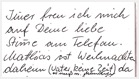 Immer freu ich mich
auf Deine liebe
Stimme am Telefon.
Mathias ist Weihnachten
daheim (unter keine Zeit) da